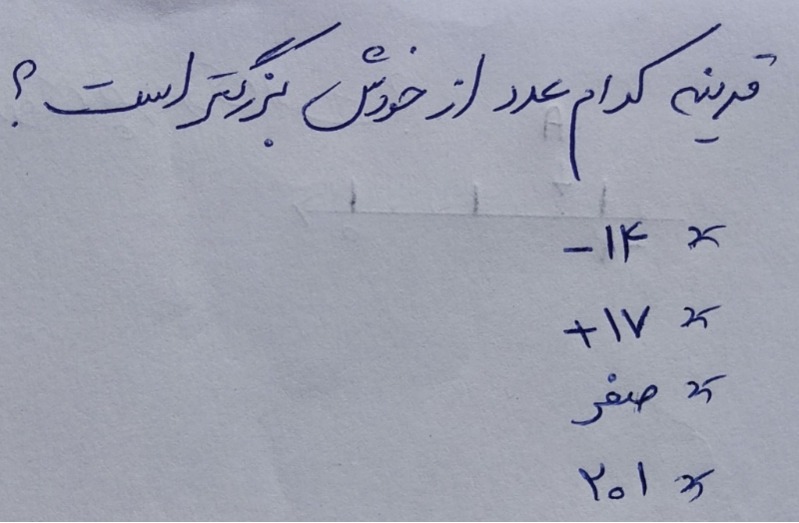 قرینه کدام عدد از خودش بزرگتر است؟
* -۱۴
* +۱۷
* صفر
* ۲۰۱